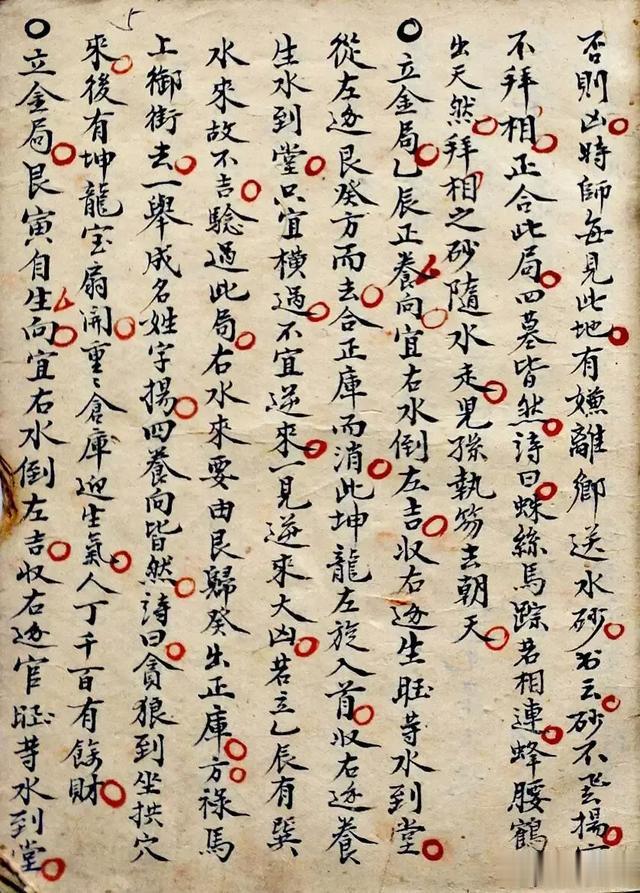 否則凶時師每見此地有嫌離鄉送水砂書云砂不飛揚
不拜相正合此局四墓皆然詩曰蛛絲馬踪若相連蜂腰鶴
出天然拜相之砂隨水走兒孫執笏去朝天
立金局乙辰正養向宜右水倒左吉收右边生旺等水到堂
從左边艮癸方而去合正庫而消此坤龍左旋入首收右边養
生水到堂只宜橫過不宜逆來一見逆來大凶若立乙辰有巽
水來故不吉驗過此局右水來要由艮歸癸出正庫方祿馬
上御街去一舉成名姓字揚四養向皆然詩曰貪狼到坐拱穴
來後有坤龍宝扇開重〻倉庫迎生氣人丁千百有餘財
立金局艮寅自生向宜右水倒左吉收右边官旺等水到堂
5